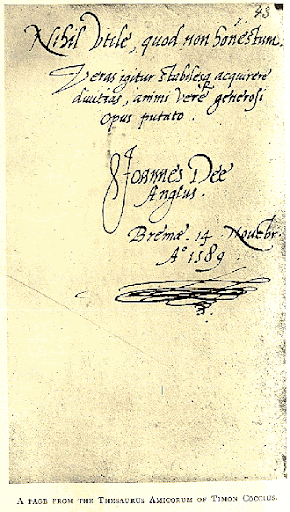 43
Nihil Vtile, quod non honestum.
Veras igitur stabilesq acquirere
diuitias, animi vere generosi
opus putato.
Joannes Dee
Anglus.
Bremæ. 14 Nouebr.
A° 1589
A PAGE FROM THE THESAURUS AMICORUM OF TIMON COCCIUS.